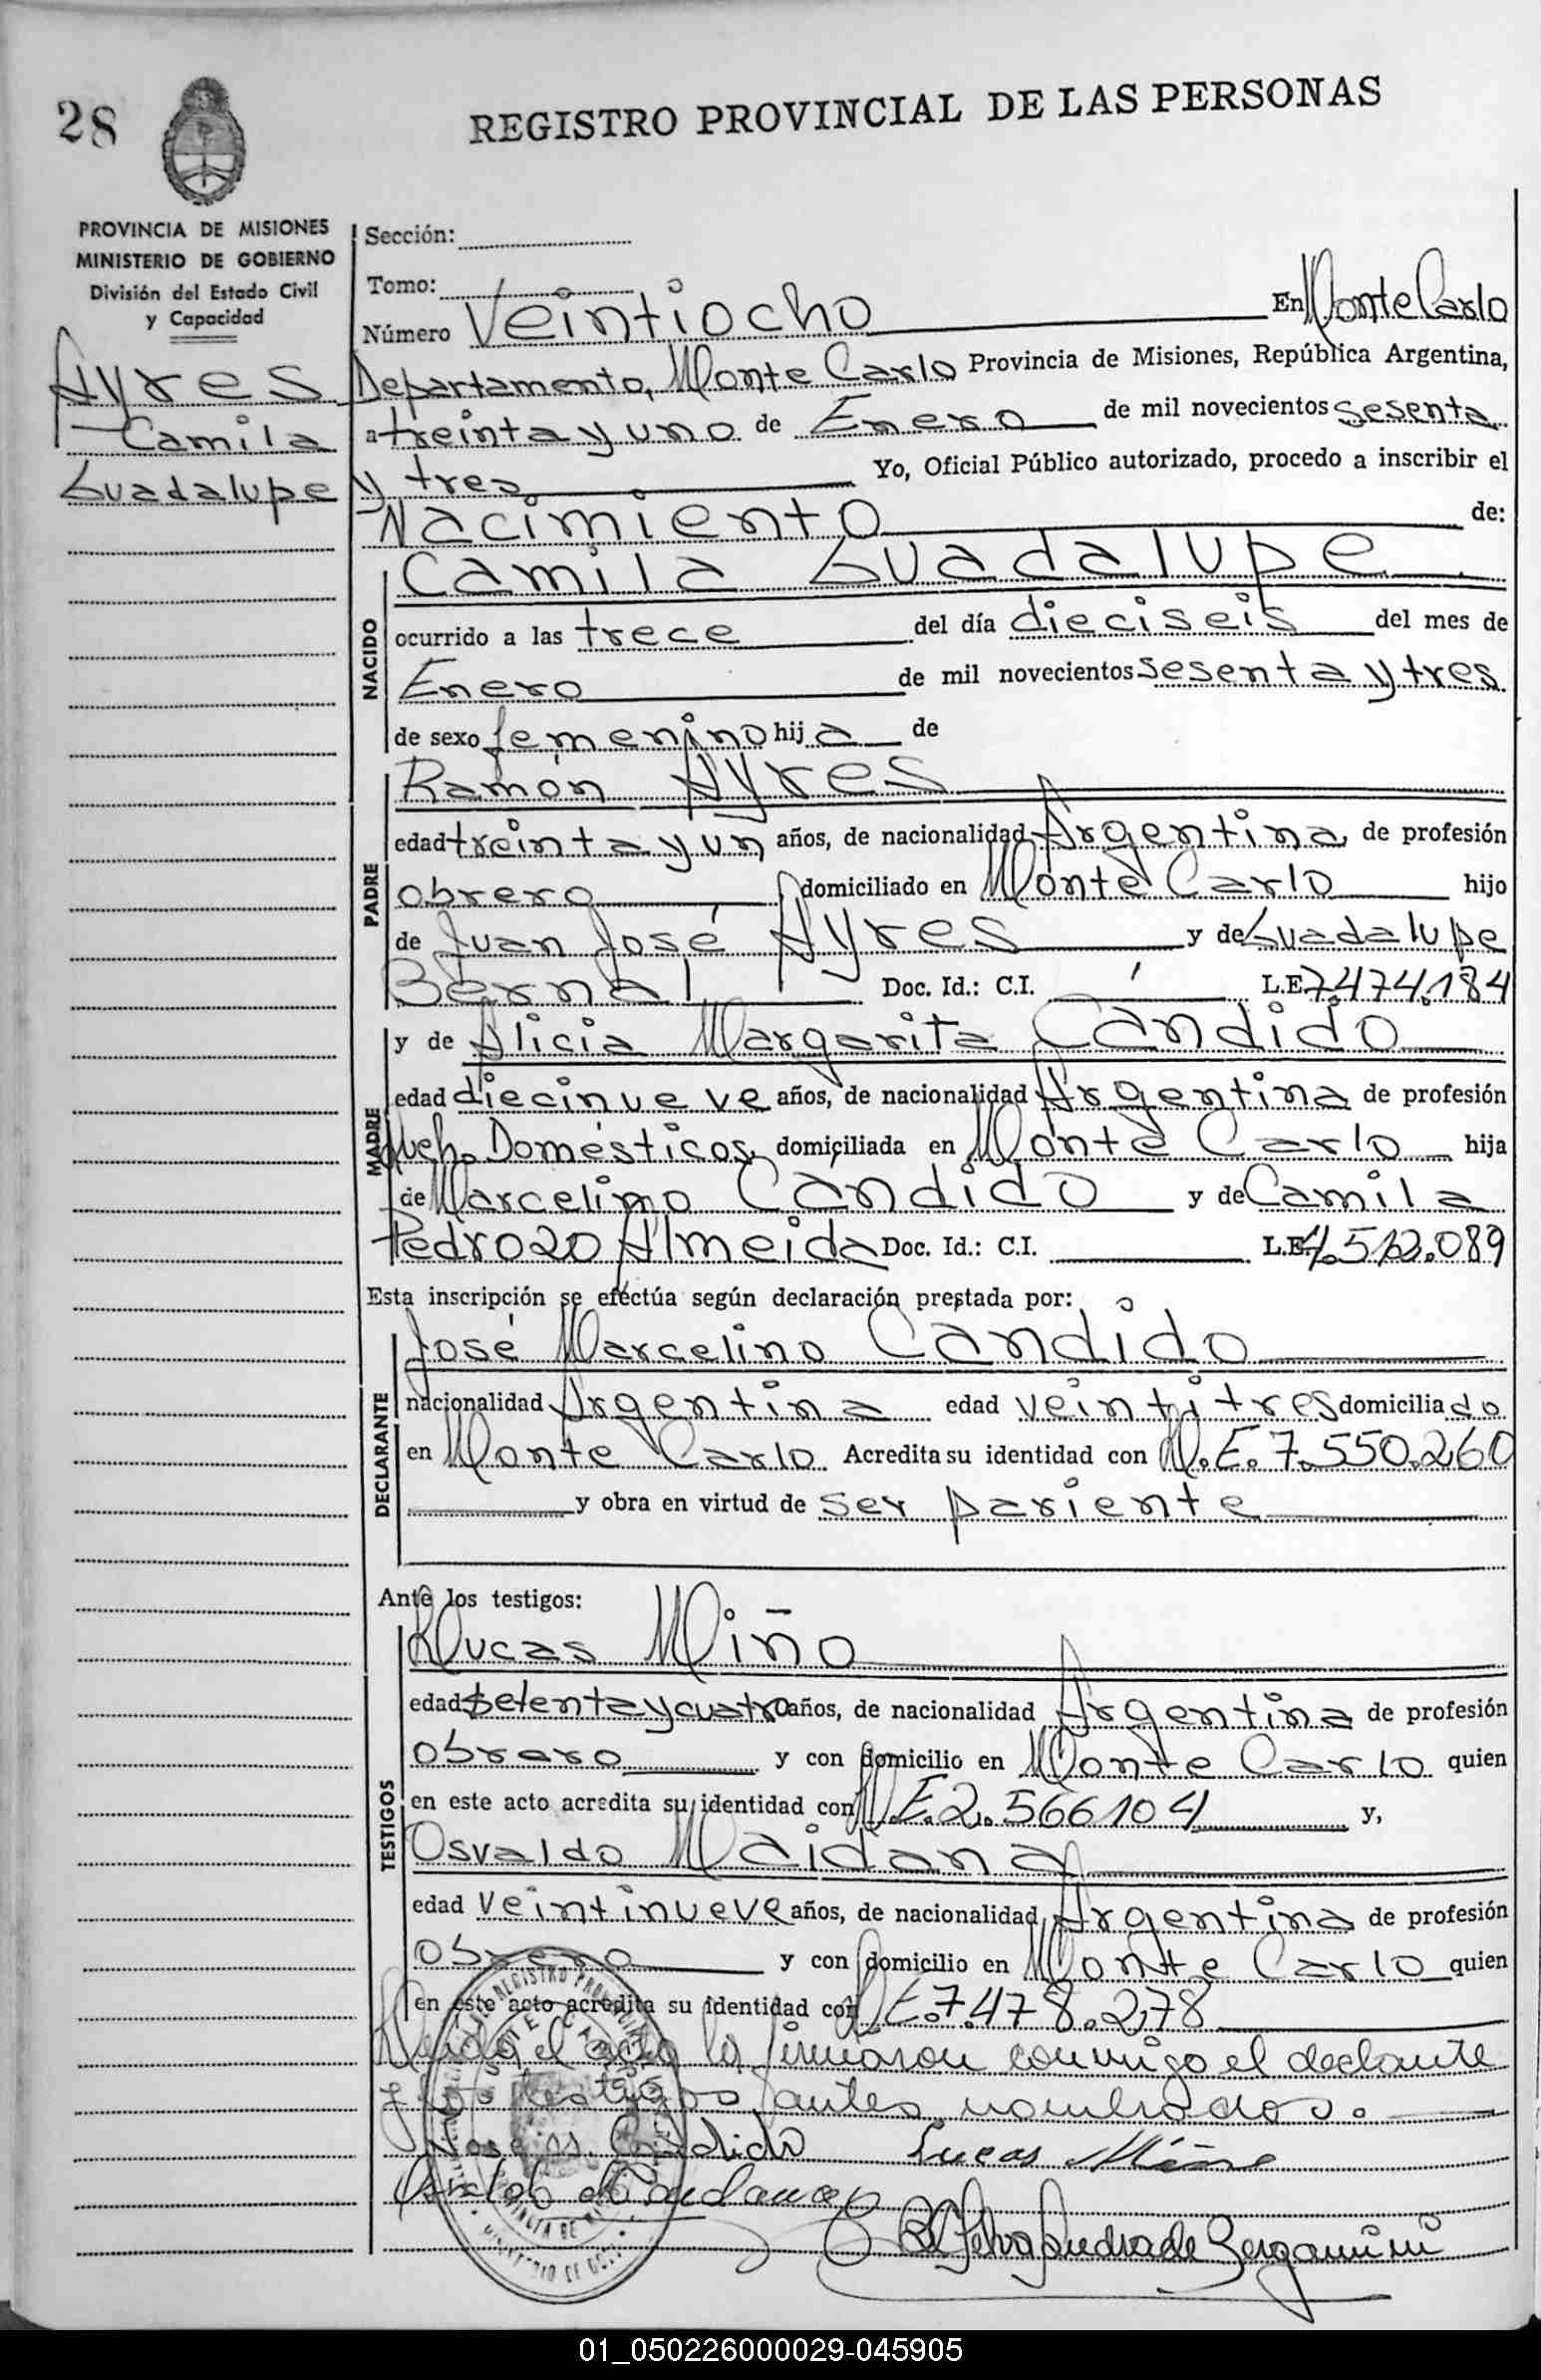 28
REGISTRO PROVINCIAL DE LAS PERSONAS
PROVINCIA DE MISIONES
MINISTERIO DE GOBIERNO
División del Estado Civil
y Capacidad
Ayres
Camila
Guadalupe
Sección:
Tomo:
Número Veintiocho En Monte Carlo
Departamento, Monte Carlo Provincia de Misiones, República Argentina,
a treinta y uno de Enero de mil novecientos sesenta
y tres Yo, Oficial Público autorizado, procedo a inscribir el
Nacimiento de:
NACIDO
Camila Guadalupe
ocurrido a las trece del día dieciseis del mes de
Enero de mil novecientos sesenta y tres
de sexo femenino hija de
PADRE
Ramón Ayres
edad treinta y un años, de nacionalidad Argentina, de profesión
obrero domiciliado en Monte Carlo hijo
de Juan José Ayres y de Guadalupe
Bernal Doc. Id.: C.I. L.E. 7.474.184
MADRE
y de Alicia Margarita Candido
edad diecinueve años, de nacionalidad Argentina de profesión
Queh. Domésticos, domiciliada en Monte Carlo hija
de Marcelino Candido y de Camila
Pedrozo Almeida Doc. Id.: C.I. L.E.
Esta inscripción se efectúa según declaración prestada por:
DECLARANTE
José Marcelino Candido
nacionalidad Argentina edad veintitres domiciliado
en Monte Carlo Acredita su identidad con M.E. 7.550.260
y obra en virtud de ser pariente
Ante los testigos:
TESTIGOS
Lucas Miño
edad setenta y cuatro años, de nacionalidad Argentina de profesión
obrero y con domicilio en Monte Carlo quien
en este acto acredita su identidad con M.E. 2.566104 y,
Osvaldo Maidana
edad veintinueve años, de nacionalidad Argentina de profesión
obrero y con domicilio en Monte Carlo quien
en este acto acredita su identidad con M.E. 7.478.278
Leida el acta la firmaron conmigo el declante
y los testigos antes nombrados.
José M. Candido Lucas Miño
Osvaldo Maidana
Andrade Bergamini
01_050226000029-045905